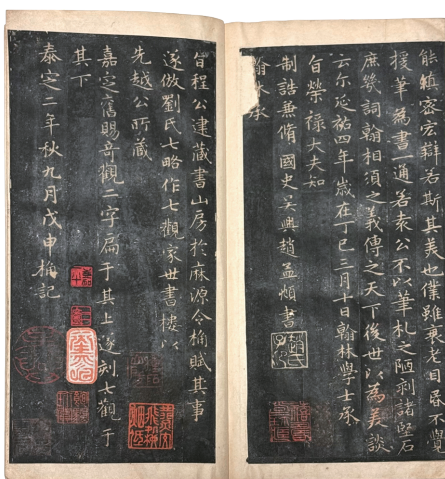 能縝密宏辯若斯其美也僕雖衰老目昏不覺
援筆為書一通若袁公不以筆札之陋刻諸堅石
庶幾詞翰相須之義傳之天下後世以為美談
云尔延祐四年歲在丁巳三月十日翰林學士承
旨榮祿大夫知
制誥兼脩國史吳興趙孟頫書
趙氏子昂
翰林承
旨程公建藏書山房於麻源令桷賦其事
遂倣劉氏七略作七觀家世書樓以
先越公所藏
嘉定舊賜奇觀二字扁于其上遂刻七觀于
其下
泰定二年秋九月戊申桷記